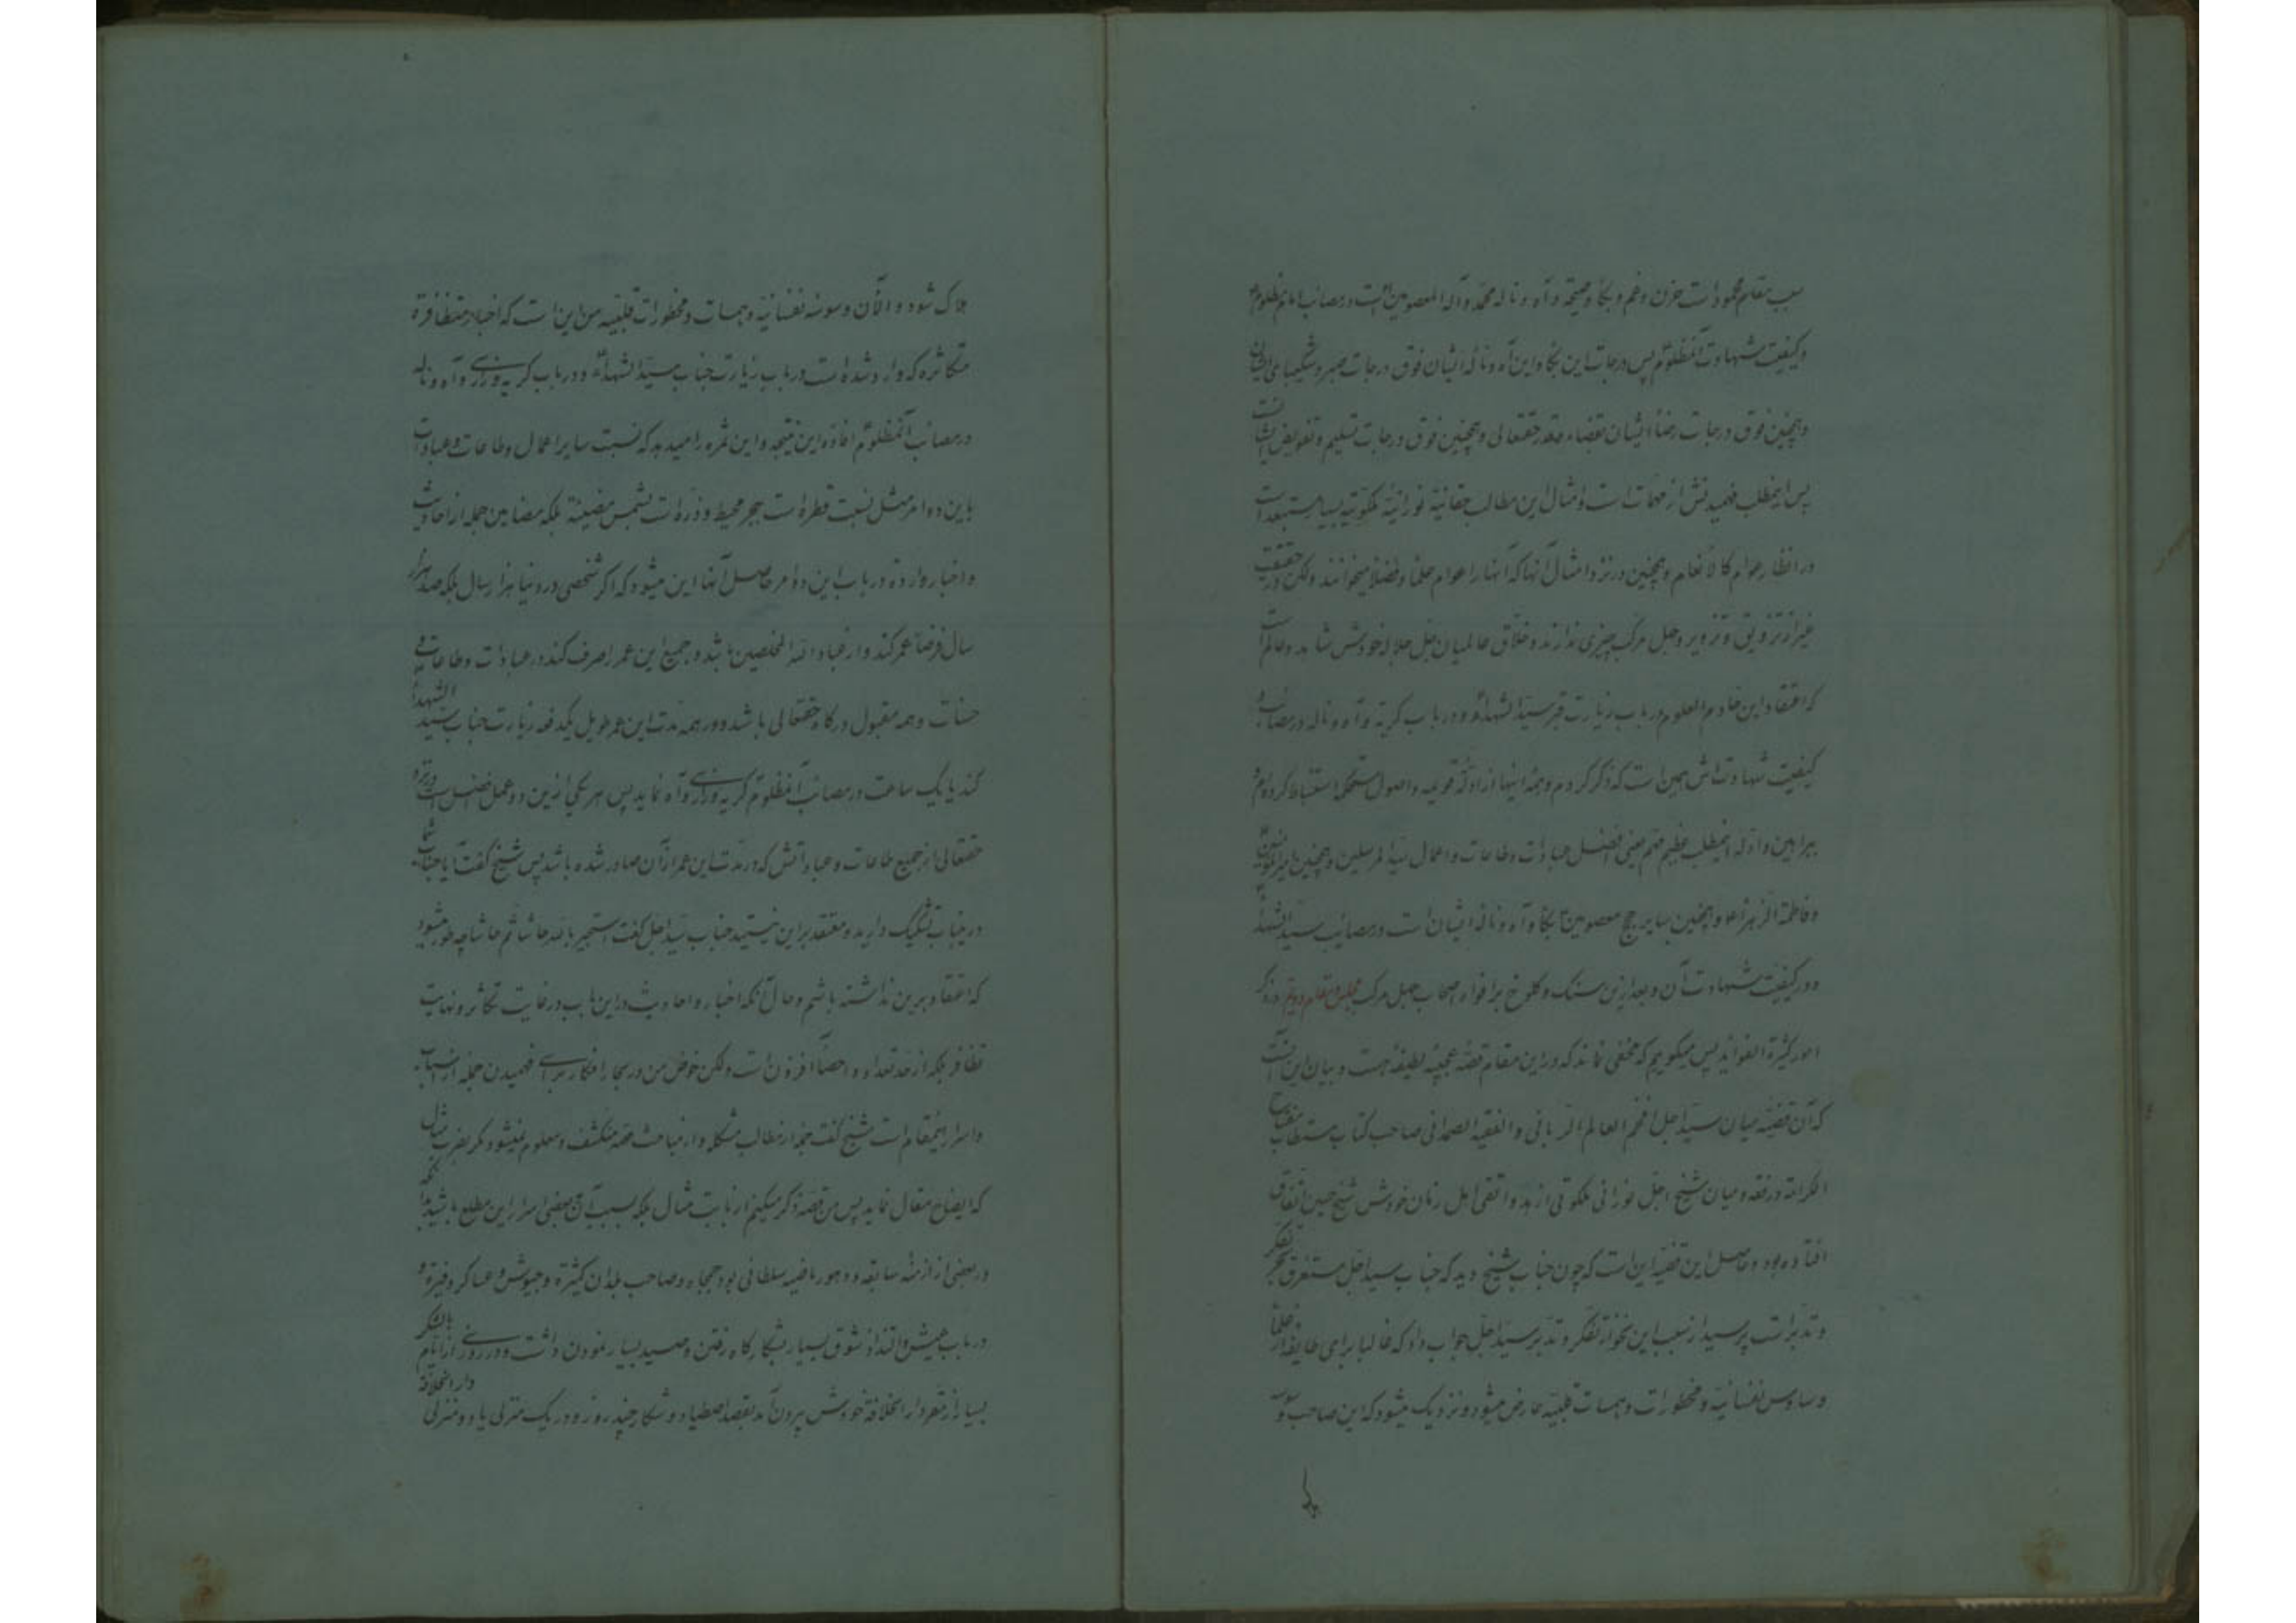 سبب مقام محمود است حزن و غم و بکاء و صیحه و آه و ناله محمد و آله المعصومین است در مصائب امام مظلوم
و کیفیت شهادت آنمظلوم پس درجات این بکا و این آه و ناله ایشان فوق درجات صبر و شکیبایی ایشان
و همچنین فوق درجات رضاء ایشان بقضاء و قدر حقتعالی و همچنین فوق درجات تسلیم و تفویض ایشان است
پس اینمطلب فهمیدنش از مهمات است و امثال این مطالب حقانیة نورانیة ملکوتیة بسیار مستبعد است
در انظار عوام کالانعام و همچنین در نزد امثال آنها که آنها را عوام علما و فضلا میخوانند ولکن در حقیقت
غیر از تزویق و تزویر و جهل مرکب چیزی ندارند و خلاق عالمیان جل جلاله خودش شاهد و عالم است
که اعتقاد این خادم العلوم در باب زیارت قبر سید الشهداء و در باب گریه و آه و ناله در مصائب و
کیفیت شهادتش همین است که ذکر کردم و همه اینها از ادله قویمه و اصول مستحکمه استنباط کرده‌ام و
براهین و ادله اینمطلب عظیم مهم یعنی افضل عبادات و طاعات و اعمال سید المرسلین و همچنین امیرالمؤمنین
و فاطمة الزهراء و همچنین سایر حجج معصومین بکاء و آه و ناله ایشان است در مصائب سید الشهداء
و در کیفیت شهادت آن و بعد ازین سنک و کلوخ بر افواه اصحاب جهل مرکب مجلس و مقام دویم در ذکر
امور کثیرة الفواید پس میکوییم که مخفی نماند که در این مقام قصه عجیبه لطیفه هست و بیان این آنست
که آن قضیه میان سید اجل افخم العالم الربانی و الفقیه الصمدانی صاحب کتاب مستطاب مفتاح
الکرامه در فقه و میان شیخ اجل نورانی ملکوتی ازهد و اتقی اهل زمان خودش شیخ حسین اتفاق
افتاده بود و حاصل این قضیه این است که چون جناب شیخ دید که جناب سید اجل مستغرق بحر تفکر
و تدبر است پرسید از سبب این نحو از تفکر و تدبر سید اجل جواب داد که غالبا برای طایفه از علما
وساوس نفسانیه و مخطورات وهمات قلبیه عارض میشود و نزدیک میشود که این صاحب وسوسه
هلاک شود و الآن وسوسه نفسانیه وهمات و مخطورات قلبیه من این است که اخبار متظافرة
متکاثره که وارد شده است در باب زیارت جناب سید الشهداء و در باب گریه و زاری و آه و ناله
در مصائب آنمظلوم افاده این نتیجه و این ثمره را میدهد که نسبت سایر اعمال و طاعات و عبادات
باین دو امر مثل نسبت قطره است ببحر محیط و ذره است بشمس مضیئة بلکه مضامین جمله از احادیث
و اخبار وارده در باب این دو امر حاصل آنها این میشود که اکر شخصی در دنیا هزار سال بلکه صد هزار
سال فرضا عمر کند و از عباد الله المخلصین باشد و جمیع این عمر را صرف کند در عبادات و طاعات و
حسنات و همه مقبول درکاه حقتعالی باشد و در همه مدت این عمر طویل یکدفعه زیارت جناب سید الشهداء
کند یا یک ساعت در مصائب آنمظلوم گریه و زاری و آه نماید پس هر یکی ازین دو عمل افضل است در نزد
حقتعالی از جمیع طاعات و عباداتش که در مدت این عمر از آن صادر شده باشد پس شیخ گفت آیا جناب شما
در ینباب تشکیک دارید و معتقد بر این نیستید جناب سید اجل گفت استجیر بالله حاشا ثم حاشا چه طور میشود
که اعتقاد برین نداشته باشم و حال آنکه اخبار و احادیث در این باب در غایت تکاثر و نهایت
تظافر بلکه از حد تعداد و احصاء افزون است ولکن خوض من در بحار افکار برای فهمیدن جمله از اسباب
و اسرار اینمقام است شیخ گفت جمله از مطالب مشکله و از مباحث منکشف و معلوم نمیشود مکر بضرب مثال
که ایضاح مقال نماید پس من قصه ذکر میکنم از بابت مثال بلکه بسبب آن ببعضی اسرار این مطلع باشید
در بعضی از ازمنه سابقه و دهور ماضیه سلطانی بود جمجاه و صاحب بلدان کثیرة و جیوش و عساکر وفیرة و
در باب عیش و التذاذ شوق بسیار بشکارکاه رفتن و صید بسیار نمودن داشت و در روزی از ایام با لشکر
بسیار از مقر دار الخلافه خودش بیرون آمد بقصد اصطیاد و شکار چند روزه و در یک منزلی یا دو منزلی دار الخلافة